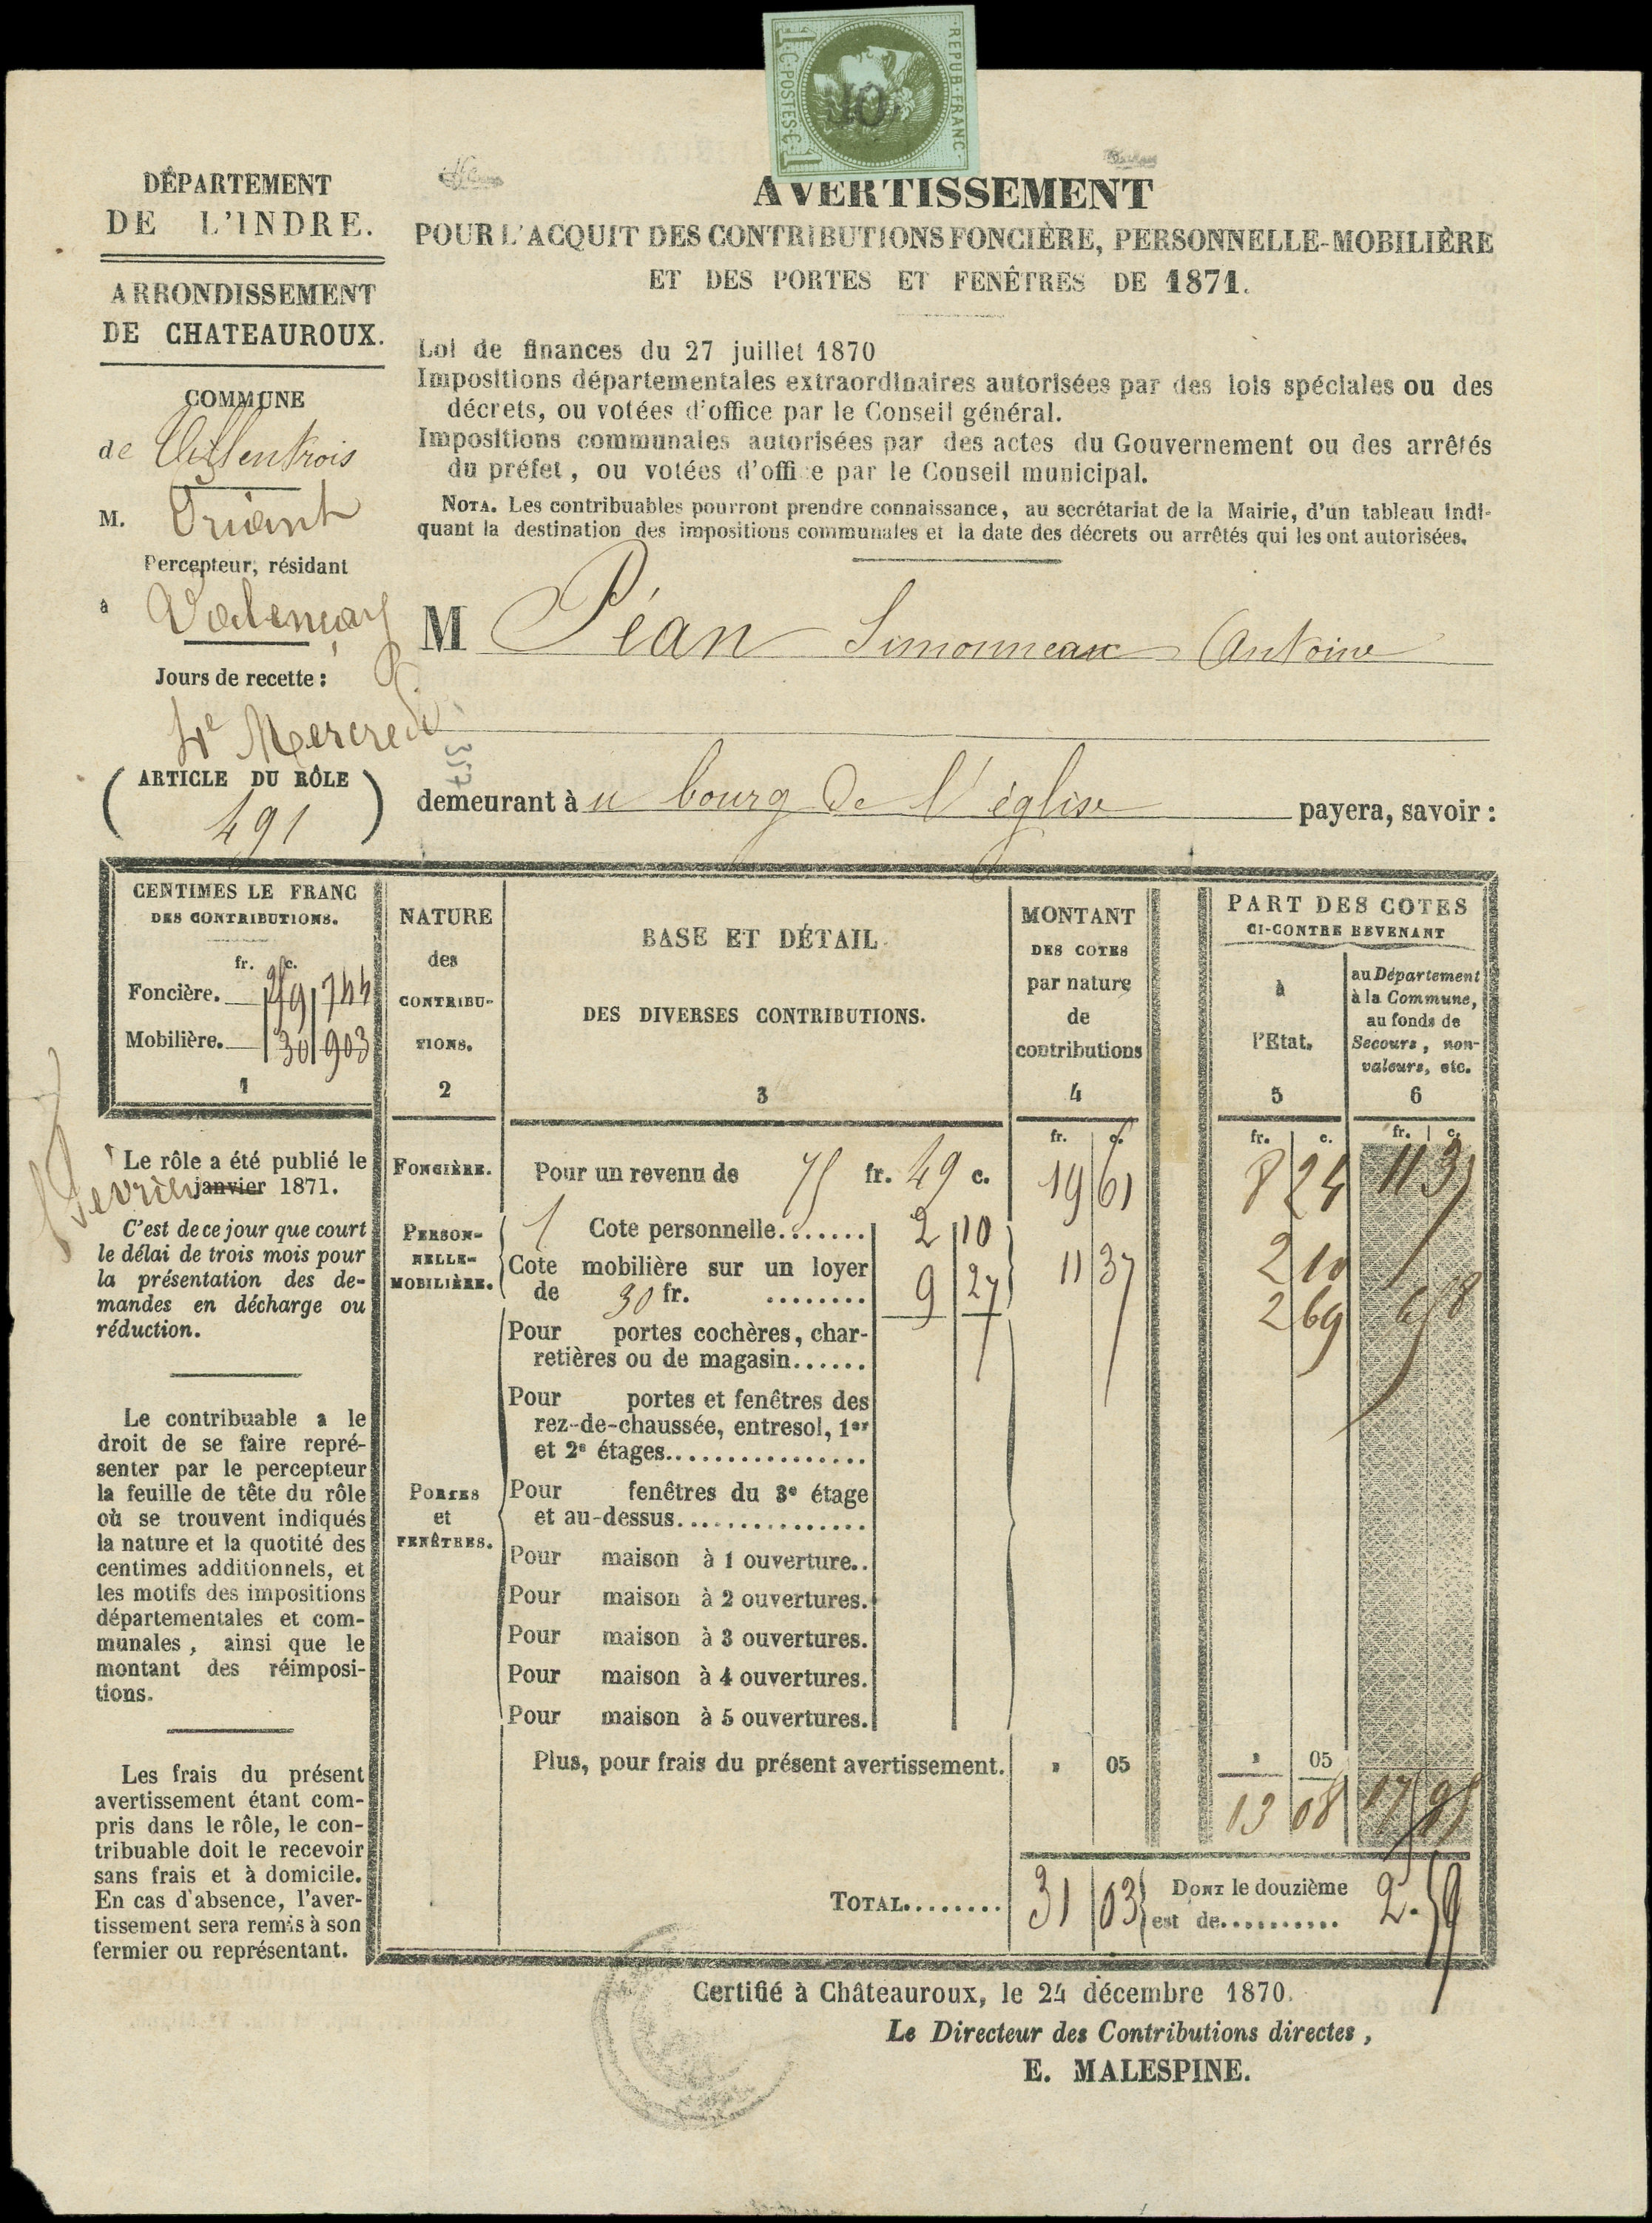 REPUB·FRANC·
1·C·POSTES·C·1
OR
DÉPARTEMENT
DE L'INDRE.
ARRONDISSEMENT
DE CHATEAUROUX.
COMMUNE
de Villentrois
M. Briant
Percepteur, résidant
à Valençay
Jours de recette :
4e Mercredi
ARTICLE DU RÔLE
491
AVERTISSEMENT
POUR L'ACQUIT DES CONTRIBUTIONS FONCIÈRE, PERSONNELLE-MOBILIÈRE
ET DES PORTES ET FENÊTRES DE 1871.
Loi de finances du 27 juillet 1870
Impositions départementales extraordinaires autorisées par des lois spéciales ou des
décrets, ou votées d'office par le Conseil général.
Impositions communales autorisées par des actes du Gouvernement ou des arrêtés
du préfet, ou votées d'offi e par le Conseil municipal.
NOTA. Les contribuables pourront prendre connaissance, au secrétariat de la Mairie, d'un tableau indi-
quant la destination des impositions communales et la date des décrets ou arrêtés qui les ont autorisées.
M Péan Simonneau Antoine
357
demeurant à u bourg de l'église payera, savoir :
CENTIMES LE FRANC
DES CONTRIBUTIONS.
fr. c.
Foncière. 744
Mobilière. 30 903
1
NATURE
des
CONTRIBU-
TIONS.
2
BASE ET DÉTAIL
DES DIVERSES CONTRIBUTIONS.
3
MONTANT
DES COTES
par nature
de
contributions
4
PART DES COTES
CI-CONTRE REVENANT
à
l'Etat.
5
au Département
à la Commune,
au fonds de
Secours, non-
valeurs, etc.
6
fr. c. fr. c. fr. c.
FONCIÈRE. Pour un revenu de 75 fr. 49 c. 19 61 8 24 11 37
PERSON-
NELLE-
MOBILIÈRE.
1 Cote personnelle....... 2 10
Cote mobilière sur un loyer
de 30 fr. ........ 9 27
11 37
2 10
2 69 6 58
PORTES
et
FENÊTRES.
Pour portes cochères, char-
retières ou de magasin......
Pour portes et fenêtres des
rez-de-chaussée, entresol, 1er
et 2e étages................
Pour fenêtres du 3e étage
et au-dessus...............
Pour maison à 1 ouverture..
Pour maison à 2 ouvertures.
Pour maison à 3 ouvertures.
Pour maison à 4 ouvertures.
Pour maison à 5 ouvertures.
Plus, pour frais du présent avertissement. » 05 » 05
13 08 17 95
TOTAL........ 31 03 DONT le douzième
est de.......... 2.59
Le rôle a été publié le
5 février janvier 1871.
C'est de ce jour que court
le délai de trois mois pour
la présentation des de-
mandes en décharge ou
réduction.
Le contribuable a le
droit de se faire repré-
senter par le percepteur
la feuille de tête du rôle
où se trouvent indiqués
la nature et la quotité des
centimes additionnels, et
les motifs des impositions
départementales et com-
munales, ainsi que le
montant des réimposi-
tions.
Les frais du présent
avertissement étant com-
pris dans le rôle, le con-
tribuable doit le recevoir
sans frais et à domicile.
En cas d'absence, l'aver-
tissement sera remis à son
fermier ou représentant.
Certifié à Châteauroux, le 24 décembre 1870.
Le Directeur des Contributions directes,
E. MALESPINE.